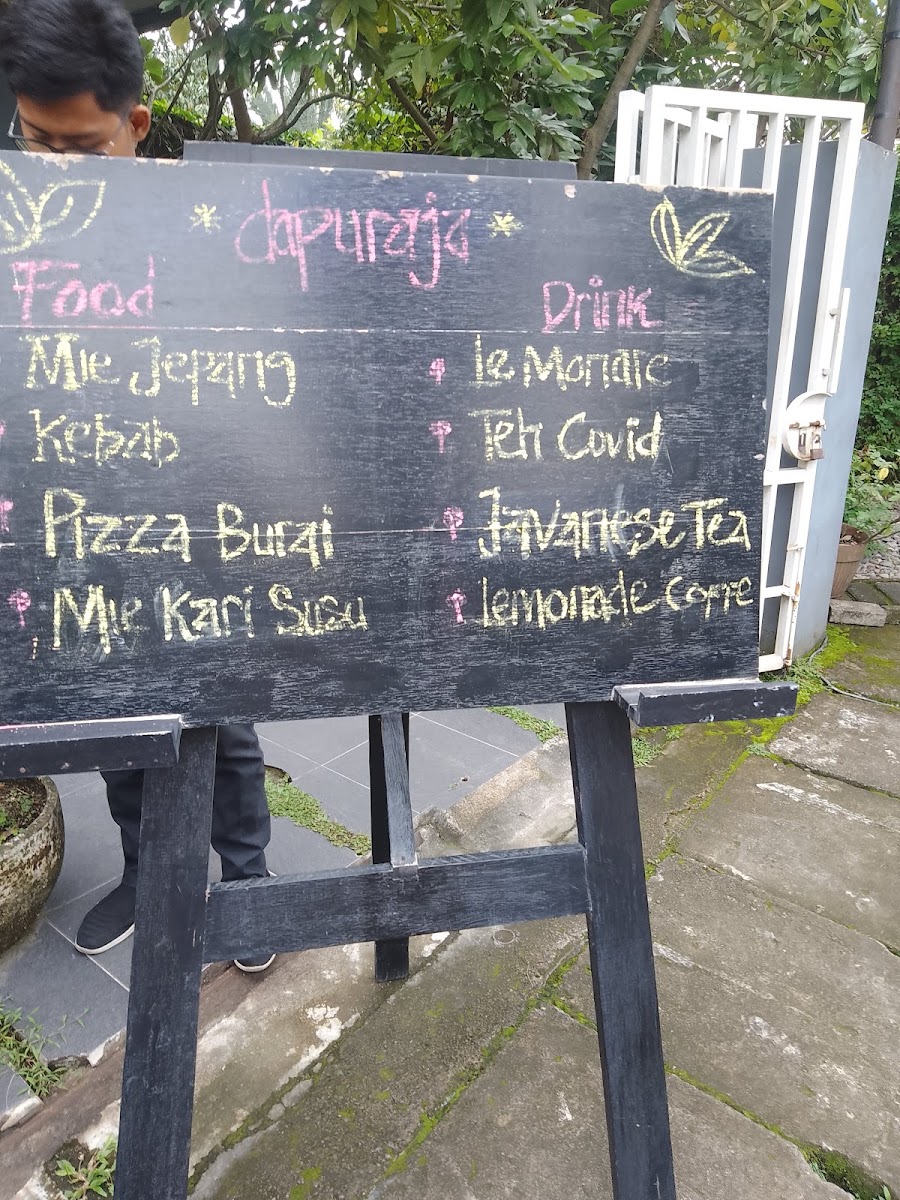 dapuraja
Food
Mie Jepang
Kebab
Pizza Burai
Mie Kari Susu
Drink
Le Monade
Teh Covid
Javanese Tea
Lemonade Coffe